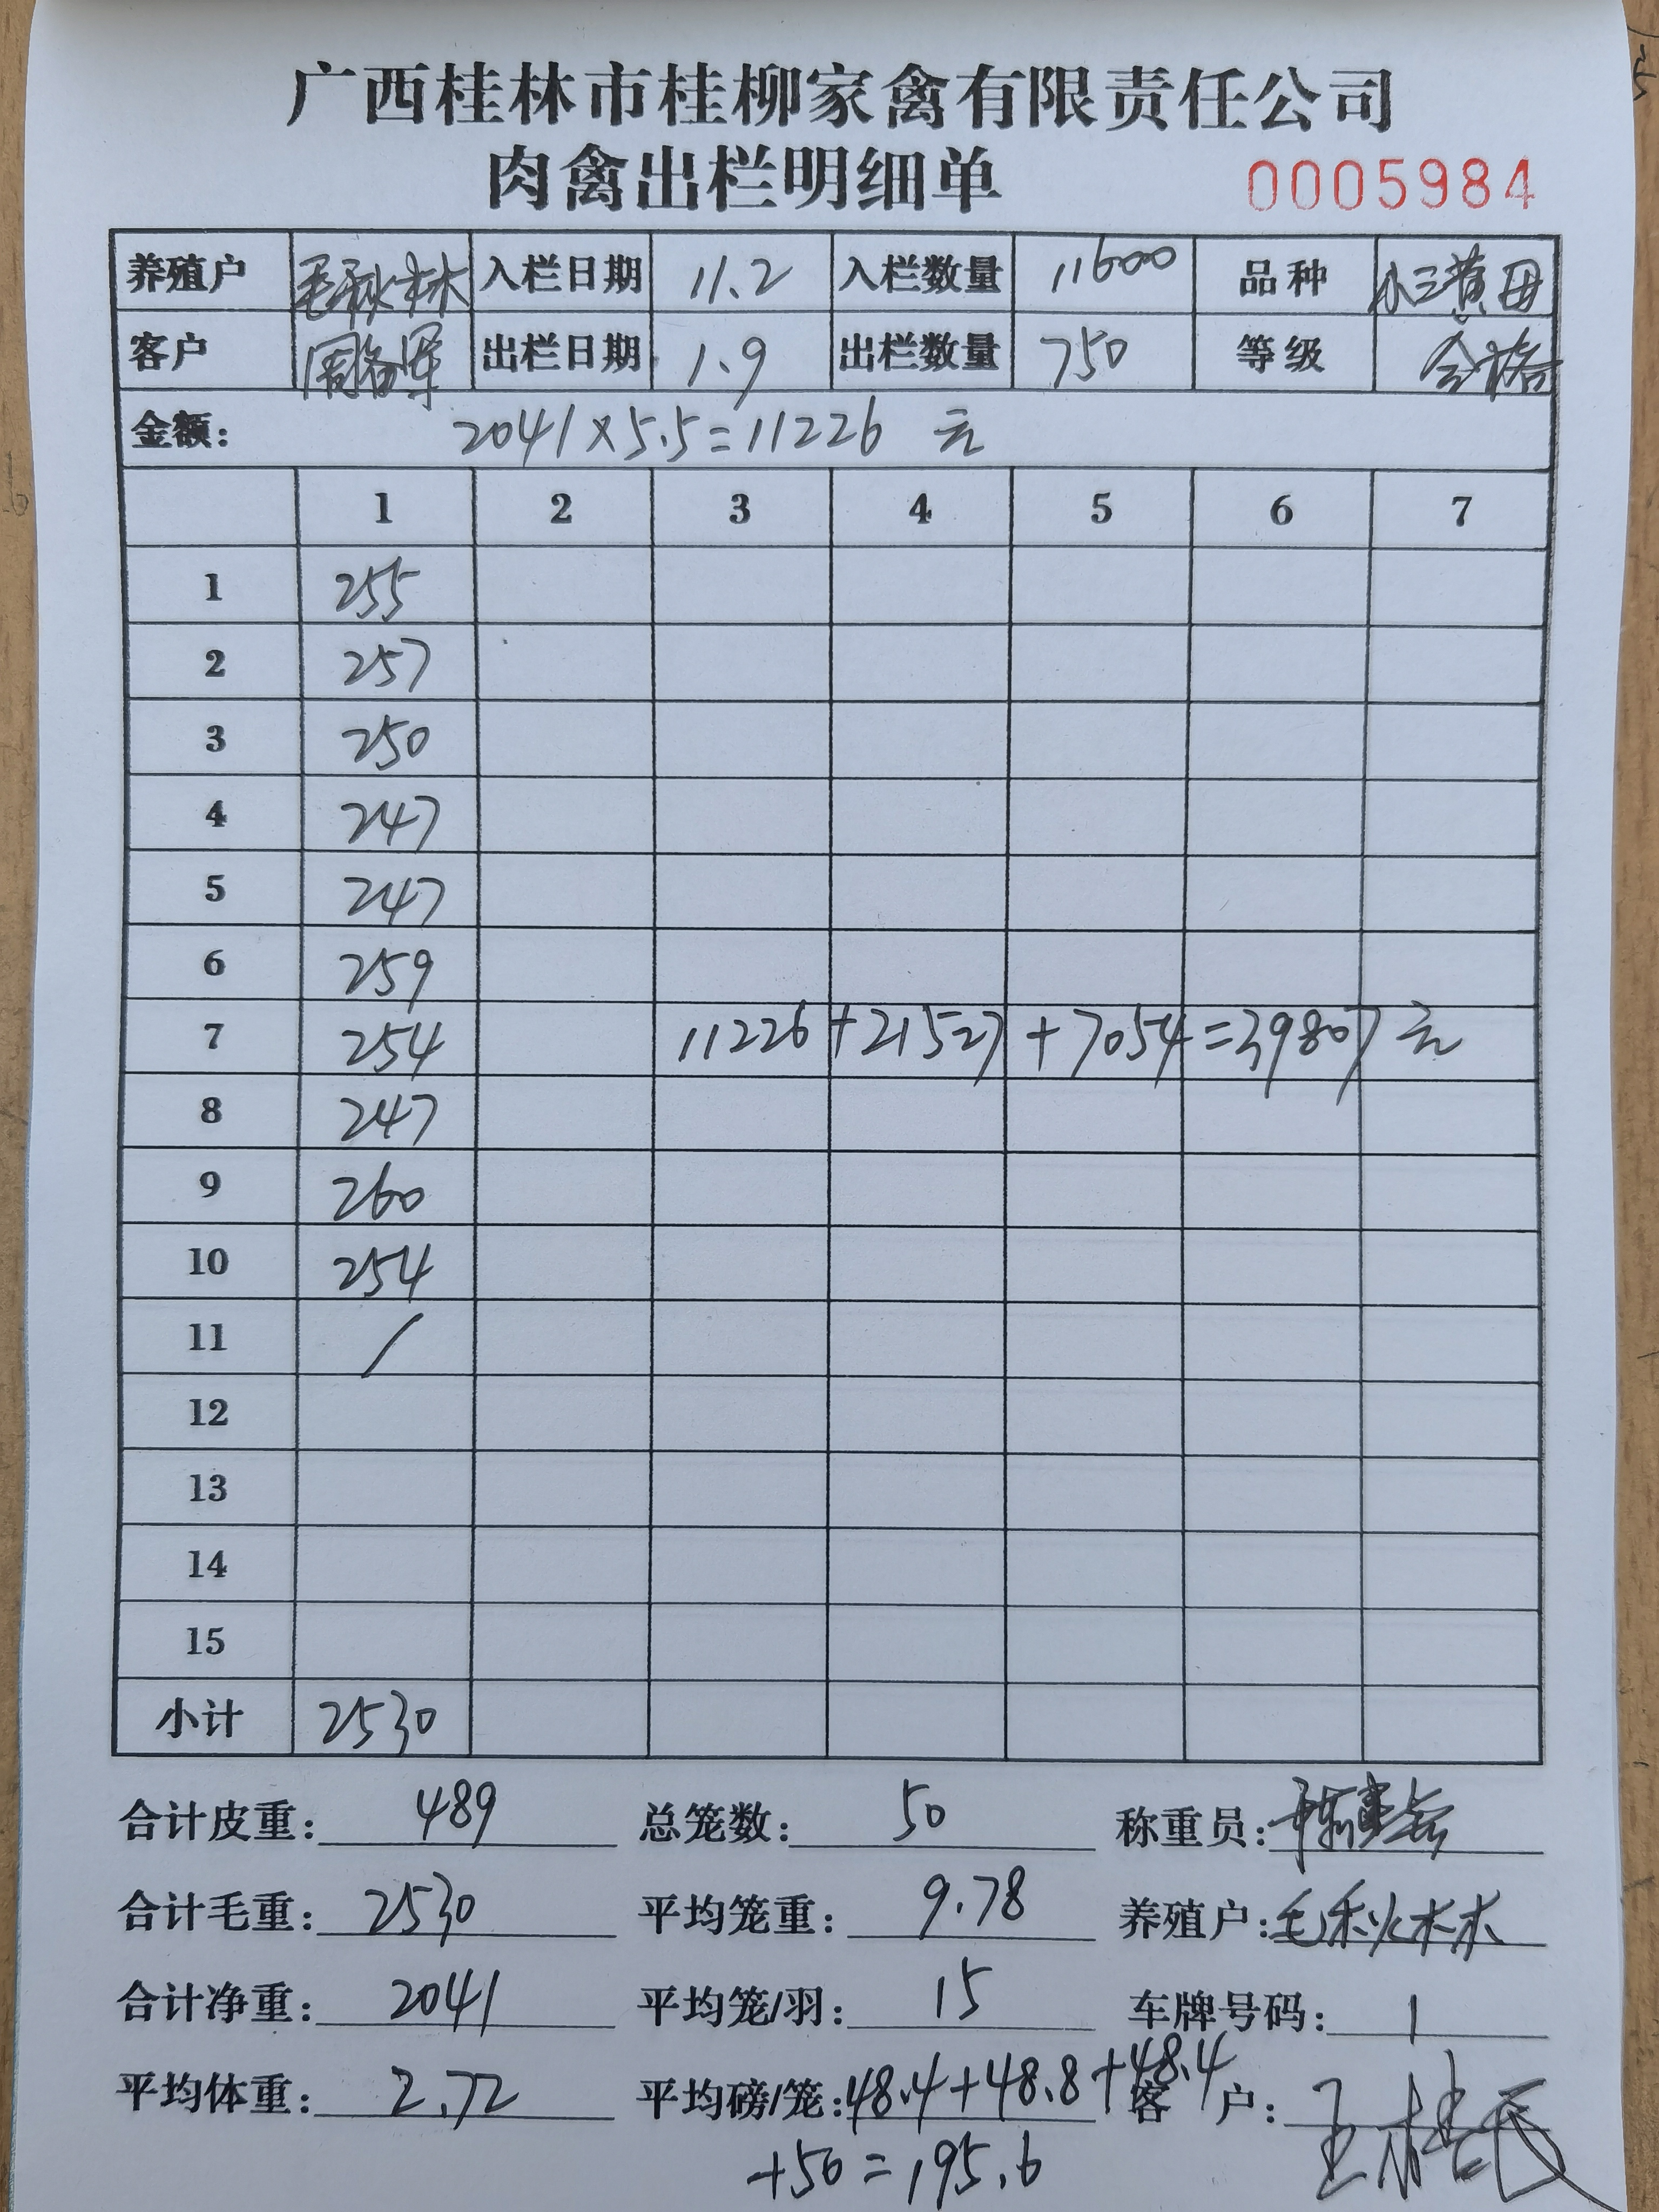 广西桂林市桂柳家禽有限责任公司
肉禽出栏明细单 0005984
养殖户 毛秋林 入栏日期 11.2 入栏数量 11600 品种 小三黄母
客户 出栏日期 1.9 出栏数量 750 等级 合格
金额: 2041×5.5=11226 元
1 2 3 4 5 6 7
1 255
2 257
3 250
4 247
5 247
6 259
7 254 11226+21527+7054=39807 元
8 247
9 260
10 254
11 /
12
13
14
15
小计 2530
合计皮重: 489 总笼数: 50 称重员:
合计毛重: 2530 平均笼重: 9.78 养殖户: 毛秋林
合计净重: 2041 平均笼/羽: 15 车牌号码: 1
平均体重: 2.72 平均磅/笼: 48.4+48.8+48.4 客 户: 王桂民
+50=195.6